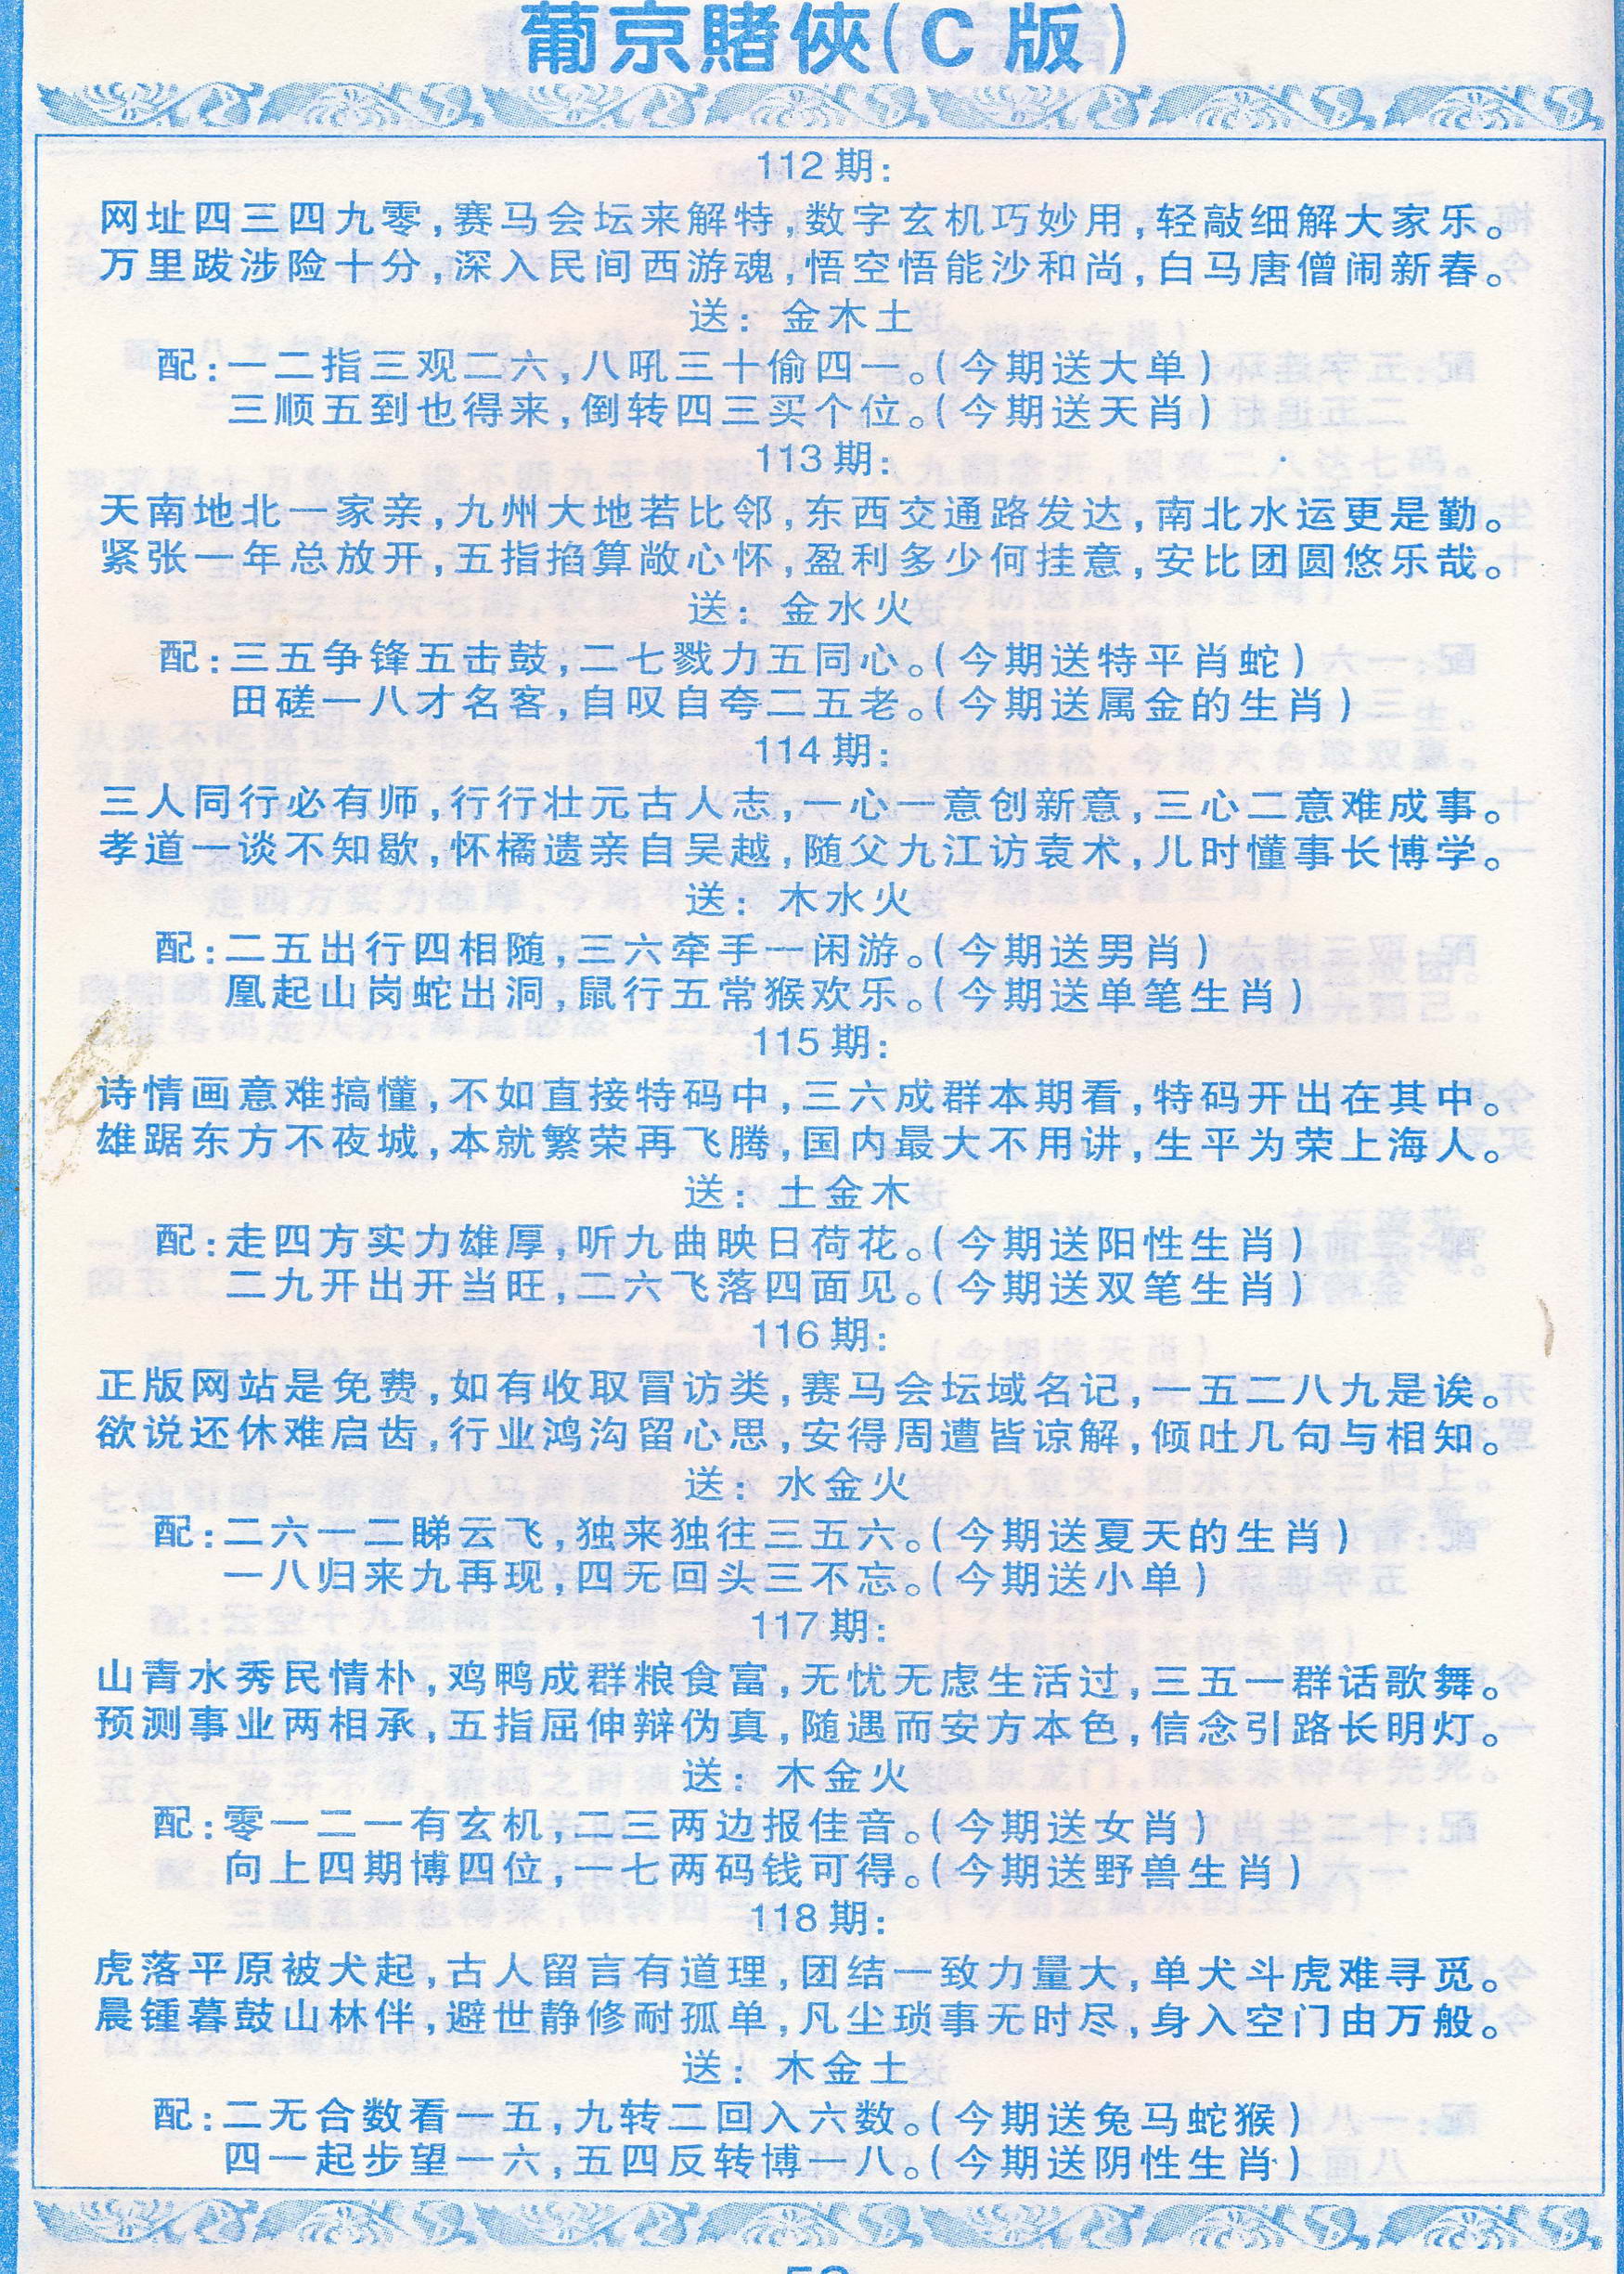 葡京賭俠(C 版)
112期:
网址四三四九零,赛马会坛来解特,数字玄机巧妙用,轻敲细解大家乐。
万里跋涉险十分,深入民间西游魂,悟空悟能沙和尚,白马唐僧闹新春。
送: 金木土
配:一二指三观二六,八吼三十偷四一。(今期送大单)
三顺五到也得来,倒转四三买个位。(今期送天肖)
113期:
天南地北一家亲,九州大地若比邻,东西交通路发达,南北水运更是勤。
紧张一年总放开,五指掐算敞心怀,盈利多少何挂意,安比团圆悠乐哉。
送: 金水火
配:三五争锋五击鼓,二七戮力五同心。(今期送特平肖蛇)
田磋一八才名客,自叹自夸二五老。(今期送属金的生肖)
114期:
三人同行必有师,行行壮元古人志,一心一意创新意,三心二意难成事。
孝道一谈不知歇,怀橘遗亲自吴越,随父九江访袁术,儿时懂事长博学。
送: 木水火
配:二五出行四相随,三六牵手一闲游。(今期送男肖)
凰起山岗蛇出洞,鼠行五常猴欢乐。(今期送单笔生肖)
115期:
诗情画意难搞懂,不如直接特码中,三六成群本期看,特码开出在其中。
雄踞东方不夜城,本就繁荣再飞腾,国内最大不用讲,生平为荣上海人。
送: 土金木
配:走四方实力雄厚,听九曲映日荷花。(今期送阳性生肖)
二九开出开当旺,二六飞落四面见。(今期送双笔生肖)
116期:
正版网站是免费,如有收取冒访类,赛马会坛域名记,一五二八九是诶。
欲说还休难启齿,行业鸿沟留心思,安得周遭皆谅解,倾吐几句与相知。
送: 水金火
配:二六一二睇云飞,独来独往三五六。(今期送夏天的生肖)
一八归来九再现,四无回头三不忘。(今期送小单)
117期:
山青水秀民情朴,鸡鸭成群粮食富,无忧无虑生活过,三五一群话歌舞。
预测事业两相承,五指屈伸辩伪真,随遇而安方本色,信念引路长明灯。
送: 木金火
配:零一二一有玄机,二三两边报佳音。(今期送女肖)
向上四期博四位,一七两码钱可得。(今期送野兽生肖)
118期:
虎落平原被犬起,古人留言有道理,团结一致力量大,单犬斗虎难寻觅。
晨锺暮鼓山林伴,避世静修耐孤单,凡尘琐事无时尽,身入空门由万般。
送: 木金土
配:二无合数看一五,九转二回入六数。(今期送兔马蛇猴)
四一起步望一六,五四反转博一八。(今期送阴性生肖)